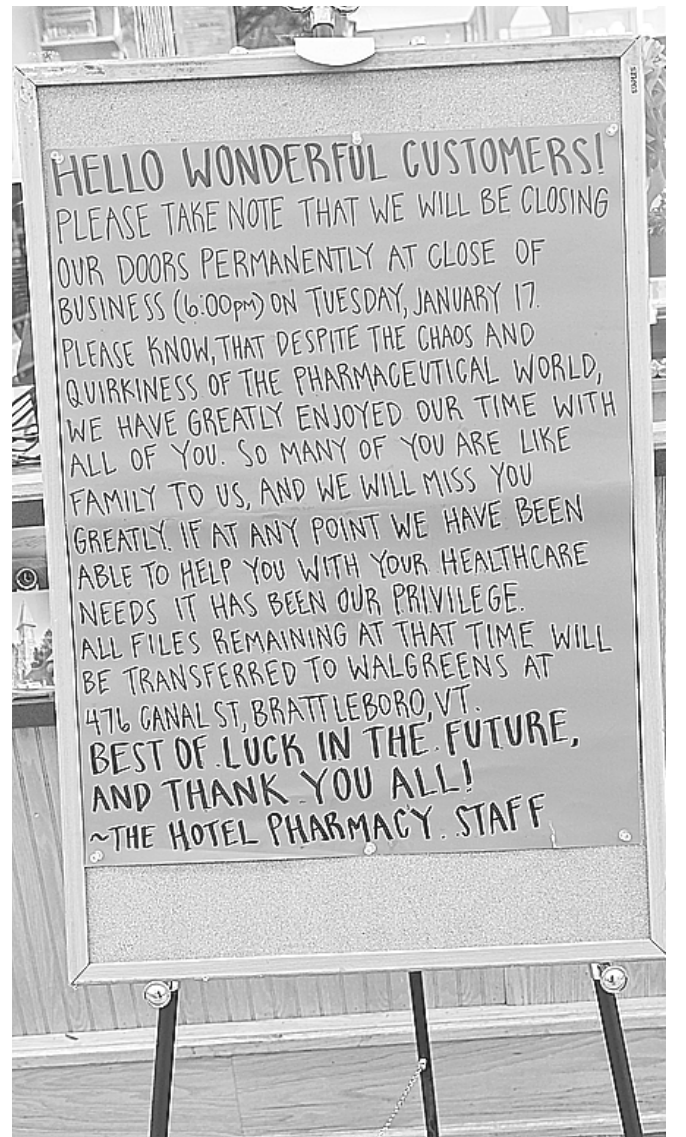 HELLO WONDERFUL CUSTOMERS!
PLEASE TAKE NOTE THAT WE WILL BE CLOSING
OUR DOORS PERMANENTLY AT CLOSE OF
BUSINESS (6:00PM) ON TUESDAY, JANUARY 17.
PLEASE KNOW, THAT DESPITE THE CHAOS AND
QUIRKINESS OF THE PHARMACEUTICAL WORLD,
WE HAVE GREATLY ENJOYED OUR TIME WITH
ALL OF YOU. SO MANY OF YOU ARE LIKE
FAMILY TO US, AND WE WILL MISS YOU
GREATLY. IF AT ANY POINT WE HAVE BEEN
ABLE TO HELP YOU WITH YOUR HEALTHCARE
NEEDS IT HAS BEEN OUR PRIVILEGE.
ALL FILES REMAINING AT THAT TIME WILL
BE TRANSFERRED TO WALGREENS AT
476 CANAL ST, BRATTLEBORO, VT.
BEST OF LUCK IN THE FUTURE,
AND THANK YOU ALL!
~THE HOTEL PHARMACY STAFF
STAPLES